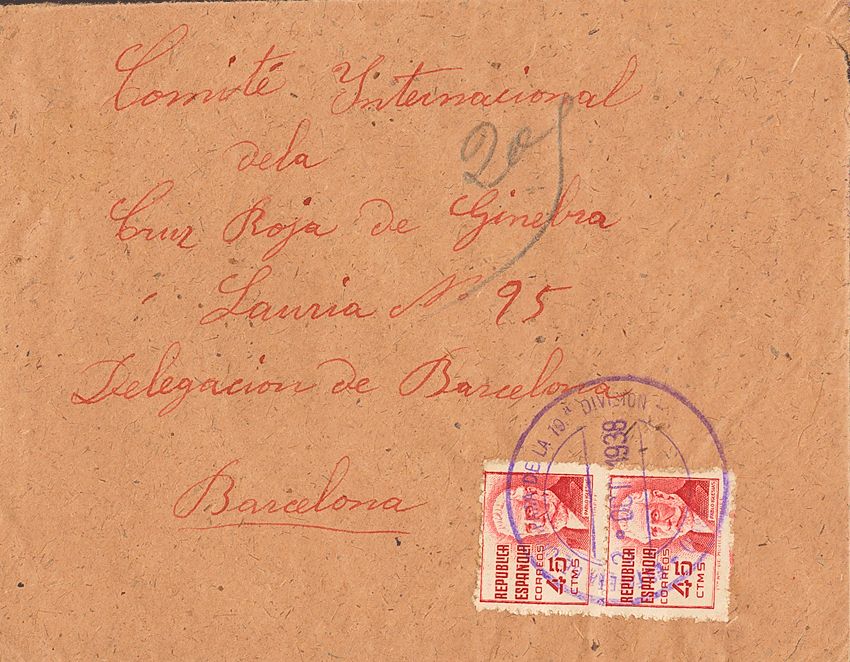 Comité Internacional
20
dela
Cruz Roja de Ginebra
Lauria Nº 95
Delegacion de Barcelona
Barcelona
DE LA 10.ª DIVISION
1938
PABLO IGLESIAS
REPUBLICA
ESPAÑOLA
CORREOS
45
CTMS
PABLO IGLESIAS
REPUBLICA
ESPAÑOLA
CORREOS
45
CTMS